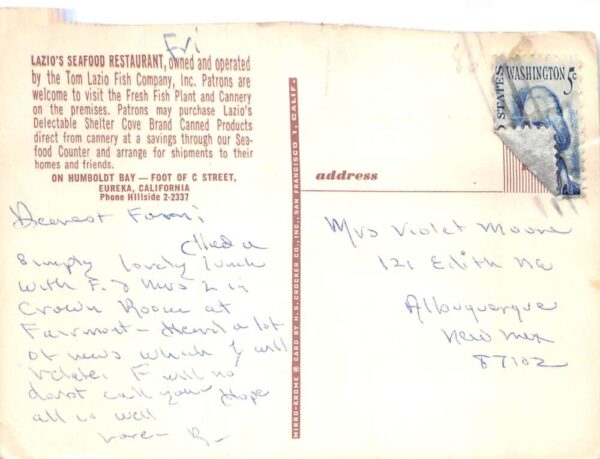 Fri
LAZIO'S SEAFOOD RESTAURANT, owned and operated
by the Tom Lazio Fish Company, Inc. Patrons are
welcome to visit the Fresh Fish Plant and Cannery
on the premises. Patrons may purchase Lazio's
Delectable Shelter Cove Brand Canned Products
direct from cannery at a savings through our Sea-
food Counter and arrange for shipments to their
homes and friends.
ON HUMBOLDT BAY — FOOT OF C STREET,
EUREKA, CALIFORNIA
Phone Hillside 2-2337
Dearest
Had a
simply lovely lunch
with F. & Mrs L in
Crown Room at
Fairmont - Heard a lot
of news which I will
relate. F will no
doubt call you Hope
all is well
Love - R
MIRRO-KROME ® CARD BY H. S. CROCKER CO., INC., SAN FRANCISCO 1, CALIF.
STATES
WASHINGTON 5c
address
Mrs Violet Moore
121 Edith NE
Albuquerque
New Mex
87102